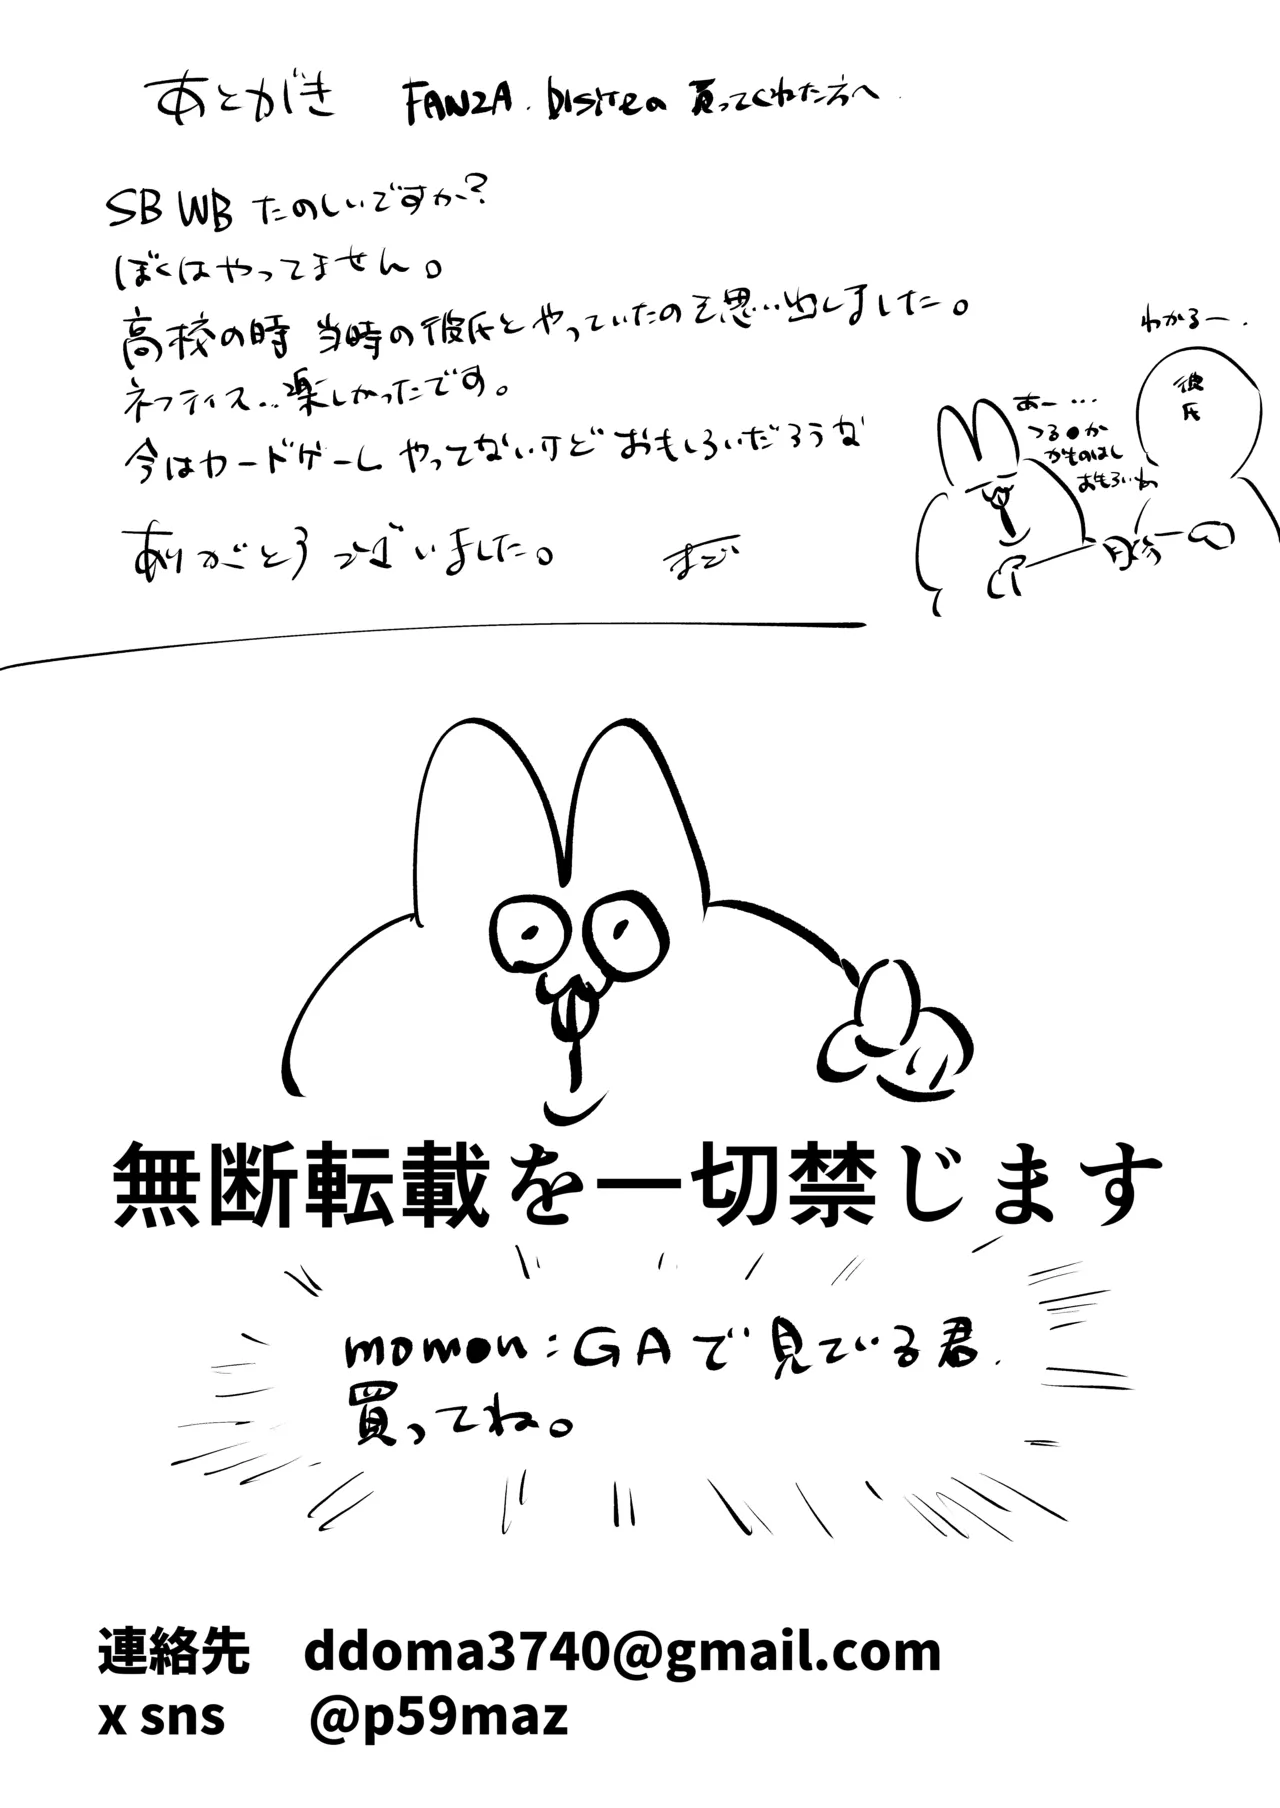 あとがき FANZA. DLsiteの 買ってくれた方へ
SB WB たのしいですか?
ぼくはやってません。
高校の時 当時の彼氏とやっていたのを思い出しました。
ネフティス..楽しかったです。
今はカードゲームやってないけどおもしろいだろうな
ありがとうございました。
わかるー.
彼氏
あー...
つる●か
かものはし
おもろいわ
無断転載を一切禁じます
momon:GAで見ている君.
買ってね。
連絡先 ddoma3740@gmail.com
x sns @p59maz